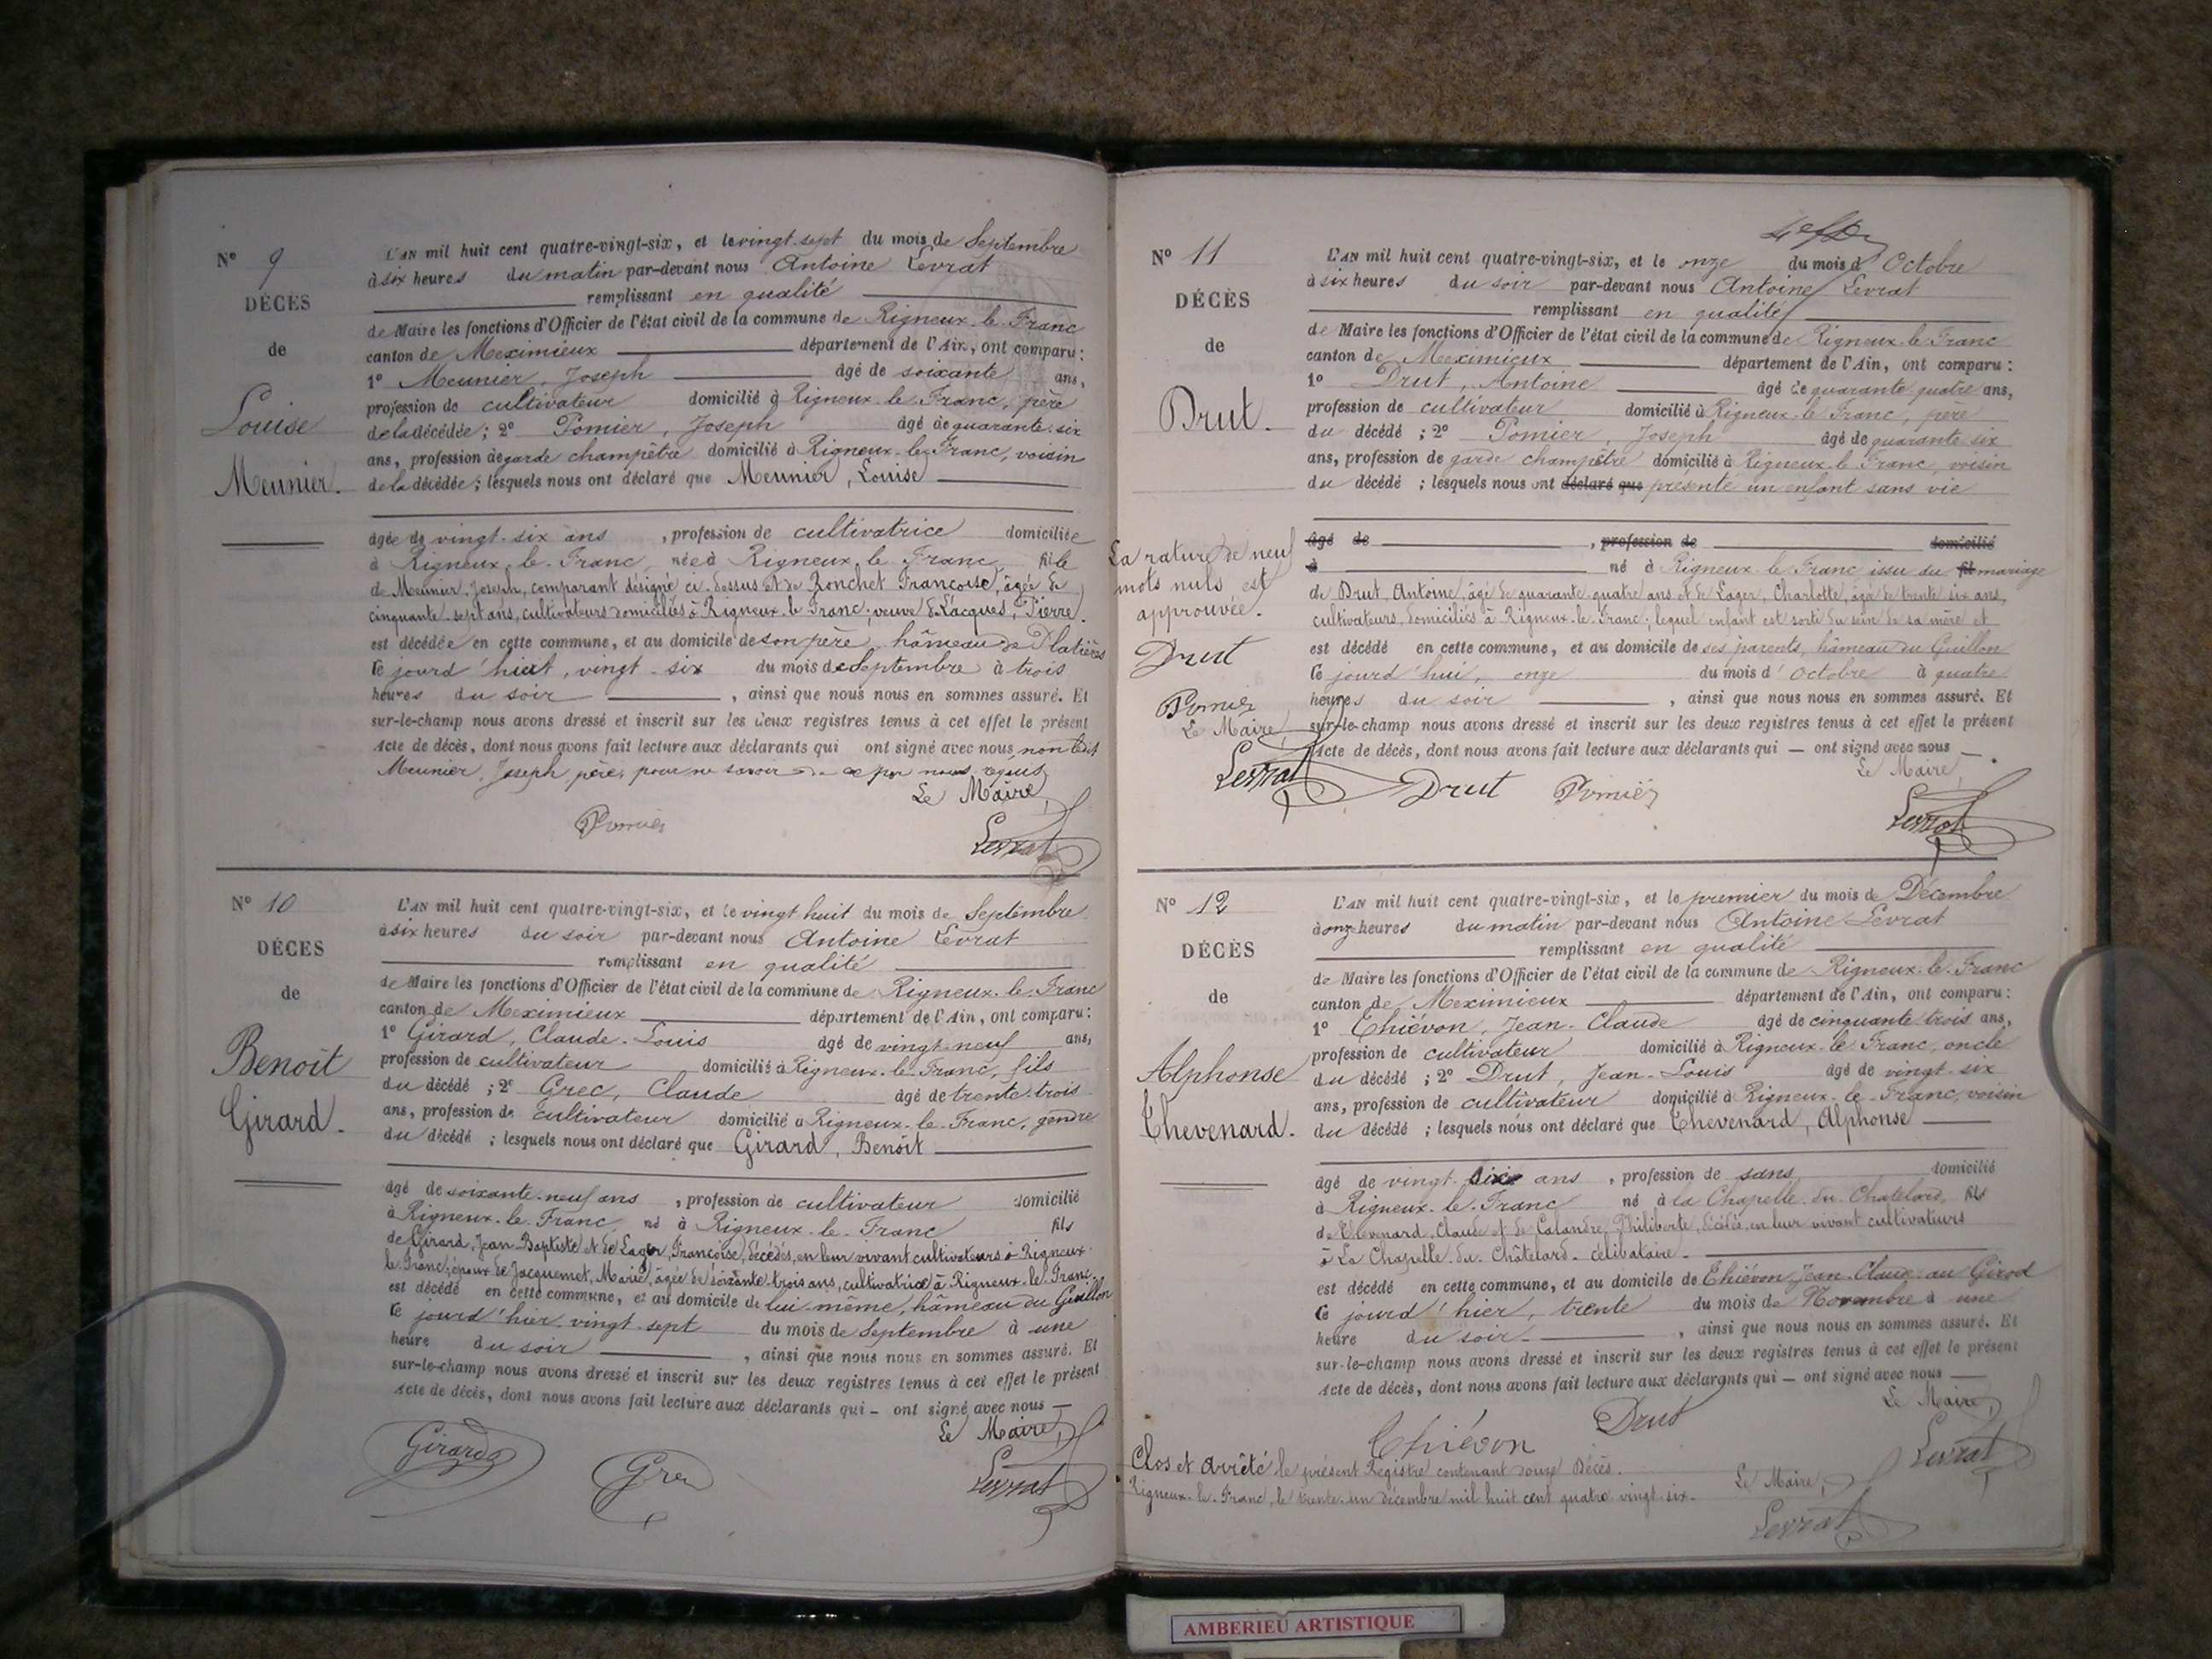 N° 9
DÉCÈS
de
Louise
Meunier.
L'AN mil huit cent quatre-vingt-six, et le vingt-sept du mois de Septembre
à six heures du matin par-devant nous Antoine Levrat
remplissant en qualité
de Maire les fonctions d'Officier de l'état civil de la commune de Rigneux-le-Franc
canton de Meximieux département de l'Ain, ont comparu :
1° Meunier, Joseph âgé de soixante ans,
profession de cultivateur domicilié à Rigneux-le-Franc, père
de la décédée ; 2° Pomier, Joseph âgé de quarante-six
ans, profession de garde champêtre domicilié à Rigneux-le-Franc, voisin
de la décédée ; lesquels nous ont déclaré que Meunier, Louise
âgée de vingt-six ans, profession de cultivatrice domiciliée
à Rigneux-le-Franc, née à Rigneux-le-Franc, fille
de Meunier Joseph, comparant désigné ci-dessus et de Ronchet Françoise, âgée de
cinquante-sept ans, cultivateurs domiciliés à Rigneux-le-Franc; veuve de Lacques, Pierre.
est décédée en cette commune, et au domicile de son père, hâmeau de Platières
le jourd'hier, vingt-six du mois de Septembre à trois
heures du soir, ainsi que nous nous en sommes assuré. Et
sur-le-champ nous avons dressé et inscrit sur les deux registres tenus à cet effet le présent
Acte de décès, dont nous avons fait lecture aux déclarants qui ont signé avec nous non ledit
Meunier, Joseph père, pour ne savoir de ce par nous requis
Le Maire,
Pomier
Levrat
N° 10
DÉCES
de
Benoît
Girard.
L'AN mil huit cent quatre-vingt-six, et le vingt huit du mois de Septembre
à six heures du soir par-devant nous Antoine Levrat
remplissant en qualité
de Maire les fonctions d'Officier de l'état civil de la commune de Rigneux-le-Franc
canton de Meximieux département de l'Ain, ont comparu :
1° Girard, Claude-Louis âgé de vingt-neuf ans,
profession de cultivateur domicilié à Rigneux-le-Franc, fils
du décédé ; 2° Grec, Claude âgé de trente-trois
ans, profession de cultivateur domicilié à Rigneux-le-Franc, gendre
du décédé ; lesquels nous ont déclaré que Girard, Benoît
âgé de soixante-neuf ans, profession de cultivateur domicilié
à Rigneux-le-Franc, né à Rigneux-le-Franc fils
de Girard, Jean-Baptiste et de Lager, Françoise, décédés, en leur vivant cultivateurs à Rigneux-
le-Franc; époux de Jacquemet, Marie, âgée de soixante-trois ans, cultivatrice à Rigneux-le-Franc.
est décédé en cette commune, et au domicile de lui-même, hâmeau du Guillon
le jourd'hier vingt-sept du mois de Septembre à une
heure du soir, ainsi que nous nous en sommes assuré. Et
sur-le-champ nous avons dressé et inscrit sur les deux registres tenus à cet effet le présent
Acte de décès, dont nous avons fait lecture aux déclarants qui — ont signé avec nous —
Le Maire,
Girard
Grec
Levrat
N° 11
DÉCÈS
de
Drut.
La rature de neuf
mots nuls est
approuvée.
Drut
Pomier
Le Maire,
Levrat
L'AN mil huit cent quatre-vingt-six, et le onze du mois d'Octobre
à six heures du soir par-devant nous Antoine Levrat
remplissant en qualité
de Maire les fonctions d'Officier de l'état civil de la commune de Rigneux-le-Franc
canton de Meximieux département de l'Ain, ont comparu :
1° Drut, Antoine âgé de quarante-quatre ans,
profession de cultivateur domicilié à Rigneux-le-Franc, père
du décédé ; 2° Pomier, Joseph âgé de quarante-six
ans, profession de garde champêtre domicilié à Rigneux-le-Franc, voisin
du décédé ; lesquels nous ont déclaré que présenté un enfant sans vie
âgé de , profession de domicilié
à né à Rigneux-le-Franc issu du fil mariage
de Drut, Antoine, âgé de quarante-quatre ans et de Lager, Charlotte, âgée de trente-six ans,
cultivateurs, domiciliés à Rigneux-le-Franc; lequel enfant est sorti du sein de sa mère et
est décédé en cette commune, et au domicile de ses parents, hâmeau du Guillon
le jourd'hui, onze du mois d'Octobre à quatre
heures du soir, ainsi que nous nous en sommes assuré. Et
sur-le-champ nous avons dressé et inscrit sur les deux registres tenus à cet effet le présent
Acte de décès, dont nous avons fait lecture aux déclarants qui — ont signé avec nous —
Le Maire,
Drut Pomier
Levrat
N° 12
DÉCÈS
de
Alphonse
Thevenard.
L'AN mil huit cent quatre-vingt-six, et le premier du mois de Décembre
à onze heures du matin par-devant nous Antoine Levrat
remplissant en qualité
de Maire les fonctions d'Officier de l'état civil de la commune de Rigneux-le-Franc
canton de Meximieux département de l'Ain, ont comparu :
1° Thiévon, Jean-Claude âgé de cinquante-trois ans,
profession de cultivateur domicilié à Rigneux-le-Franc, oncle
du décédé ; 2° Drut, Jean-Louis âgé de vingt-six
ans, profession de cultivateur domicilié à Rigneux-le-Franc, voisin
du décédé ; lesquels nous ont déclaré que Thevenard, Alphonse
âgé de vingt-six ans, profession de sans domicilié
à Rigneux-le-Franc né à la Chapelle-du-Chatelard, fils
de Thevenard, Claude et de Calandre, Philiberte, décédés, en leur vivant cultivateurs
à La Chapelle-du-Châtelard. célibataire.
est décédé en cette commune, et au domicile de Thiévon Jean-Claude au Girod
le jourd'hier, trente du mois de Novembre à une
heure du soir, ainsi que nous nous en sommes assuré. Et
sur-le-champ nous avons dressé et inscrit sur les deux registres tenus à cet effet le présent
Acte de décès, dont nous avons fait lecture aux déclarants qui — ont signé avec nous —
Le Maire,
Thiévon
Drut
Levrat
Clos et arrêté le présent Registre contenant douze Décès.
Rigneux-le-Franc, le trente-un décembre mil huit cent quatre vingt-six.
Le Maire,
Levrat
AMBERIEU ARTISTIQUE